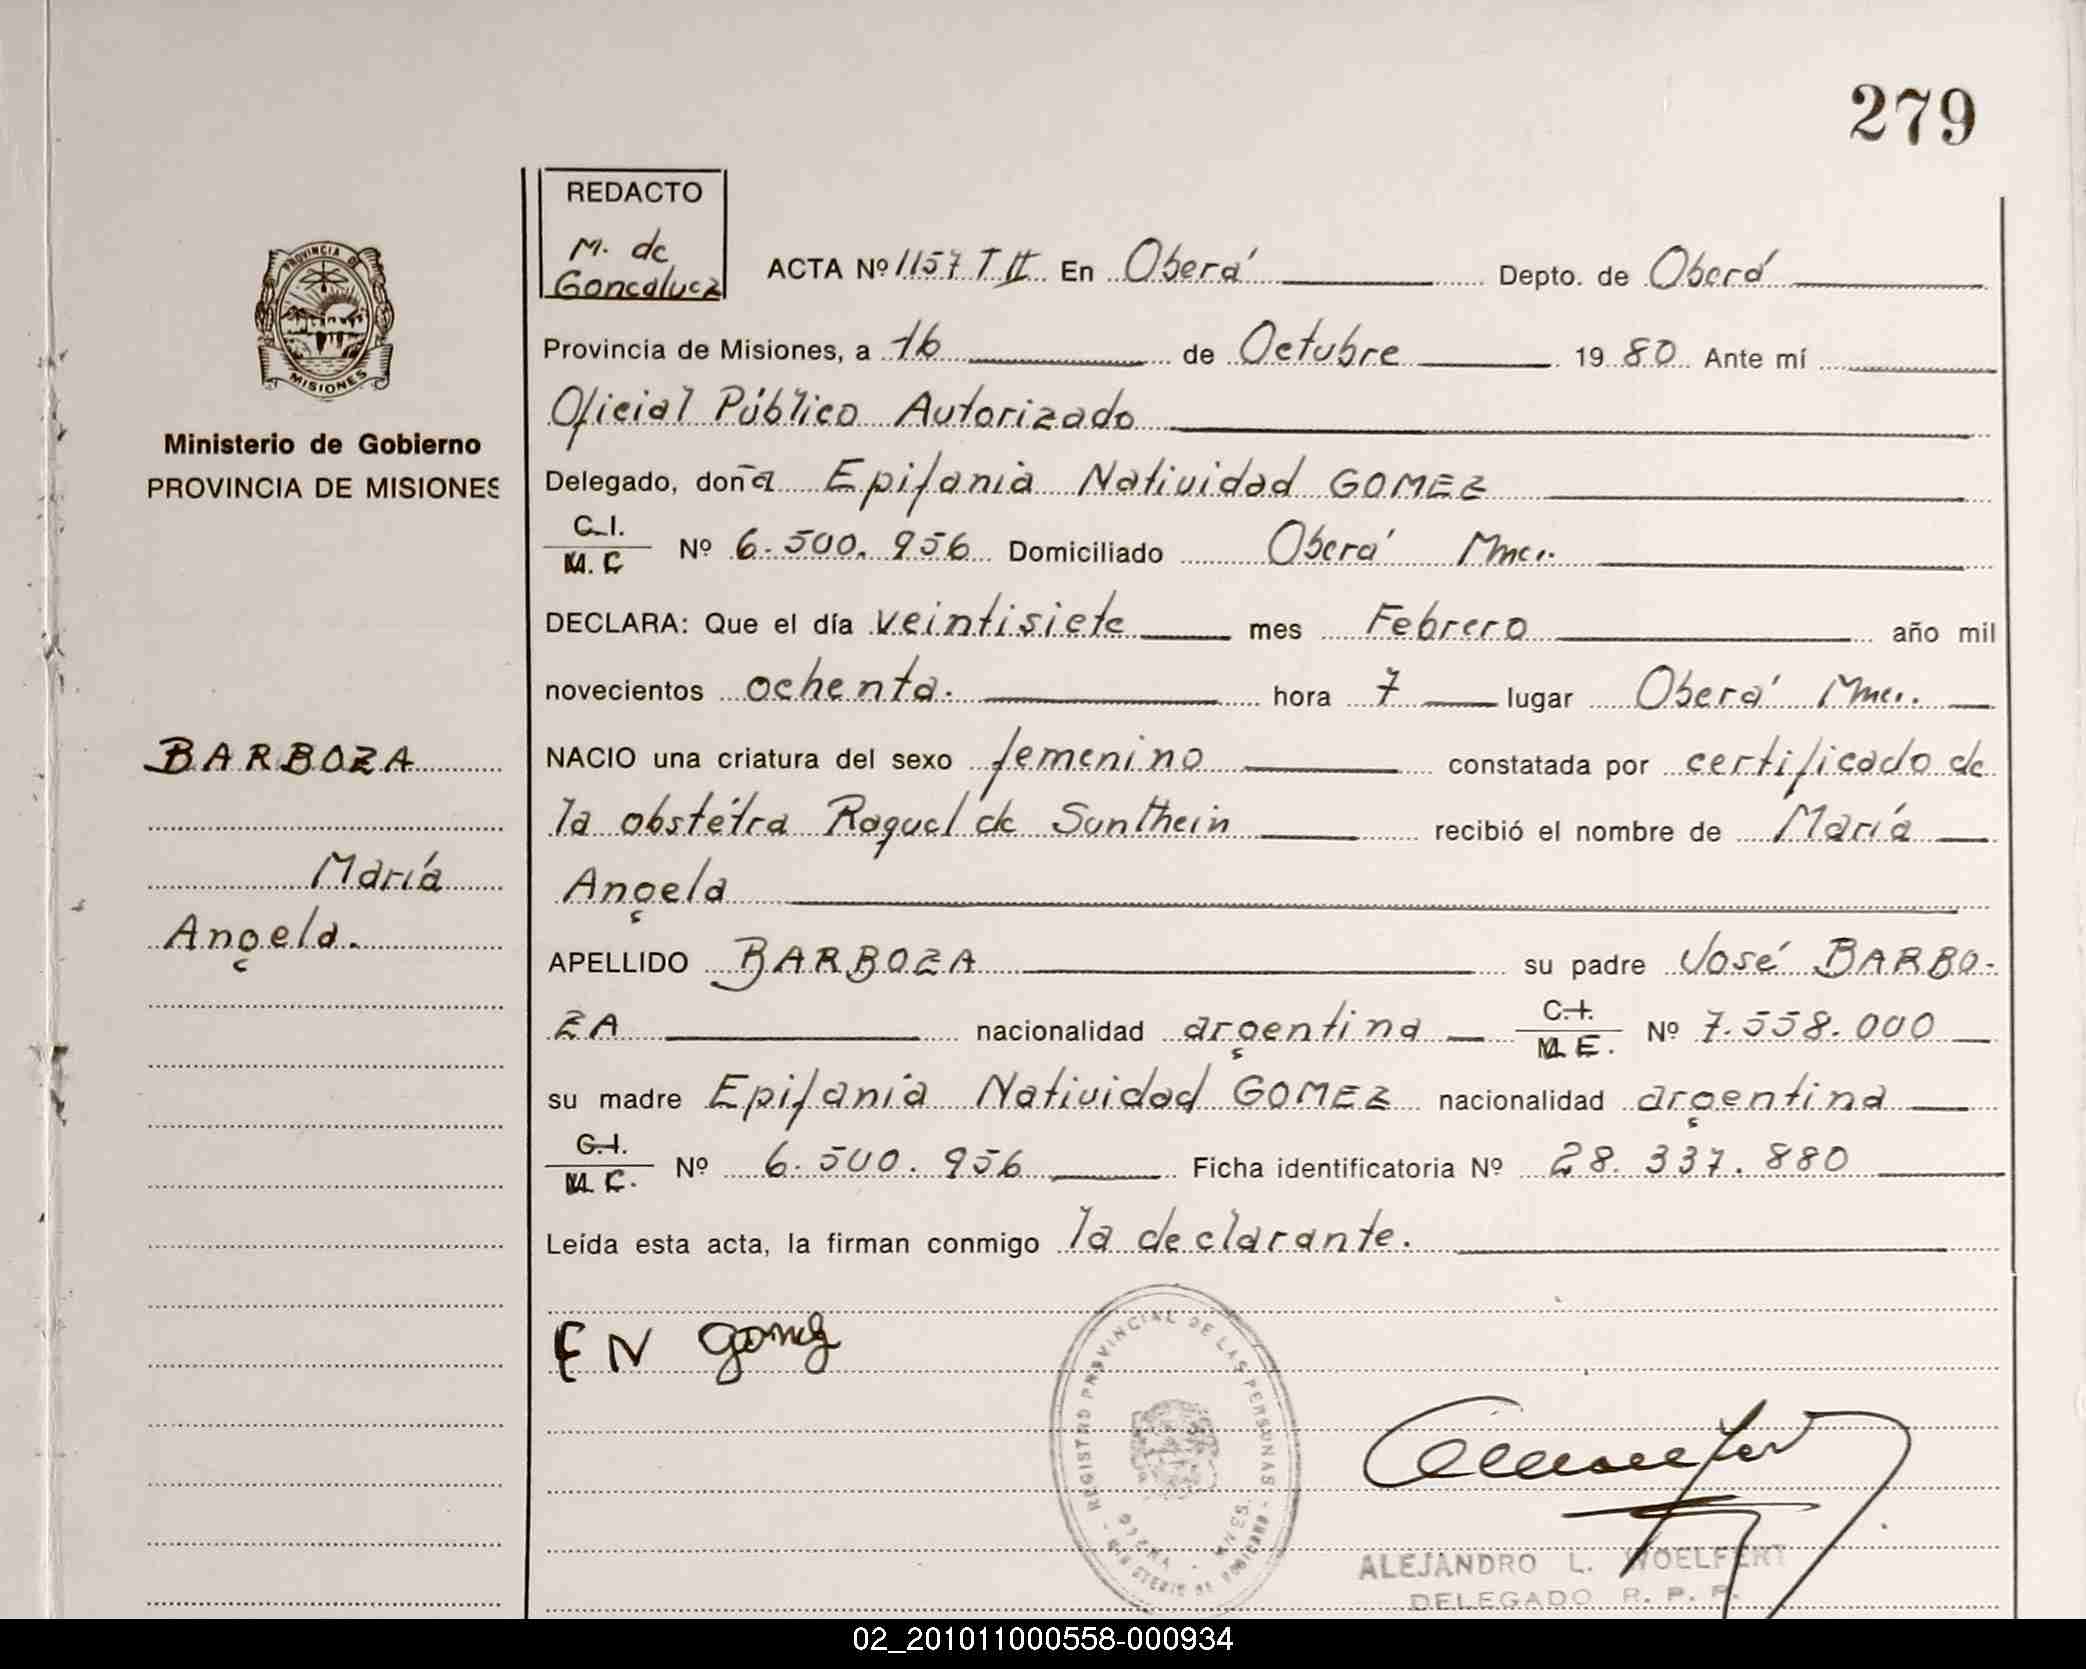 279
REDACTO
M. de
Goncalvez
ACTA Nº 1157 T II En Oberá Depto. de Oberá
Provincia de Misiones, a 16 de Octubre 1980 Ante mí
Oficial Público Autorizado
Delegado, doña Epifania Natividad GOMEZ
C.I.
M.C Nº 6.500.956 Domiciliado Oberá Mnes.
DECLARA: Que el día veintisiete mes Febrero año mil
novecientos ochenta. hora 7 lugar Oberá Mnes.
NACIO una criatura del sexo femenino constatada por certificado de
la obstétra Raquel de Sunthein recibió el nombre de María
Angela
APELLIDO BARBOZA su padre José BARBO-
ZA nacionalidad argentina C.I.
M.E. Nº 7.558.000
su madre Epifania Natividad GOMEZ nacionalidad argentina
C.I.
M.C. Nº 6.500.956 Ficha identificatoria Nº 28.337.880
Leída esta acta, la firman conmigo la declarante.
E N Gomez
PROVINCIA DE
MISIONES
Ministerio de Gobierno
PROVINCIA DE MISIONES
BARBOZA
María
Angela.
REGISTRO PROVINCIAL DE LAS PERSONAS
OBERA - MNES.
MINISTERIO DE GOBIERNO
ALEJANDRO L. WOELFERT
DELEGADO R. P. P.
02_201011000558-000934